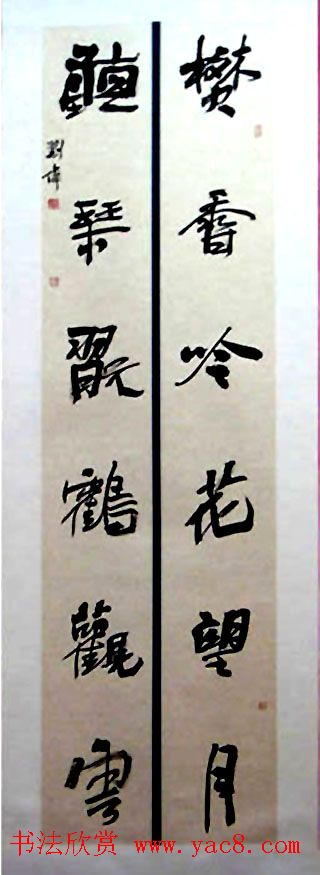 燓香吟花望月
聽琴翫鶴觀雲
劉偉
书法欣赏 www.yac8.com